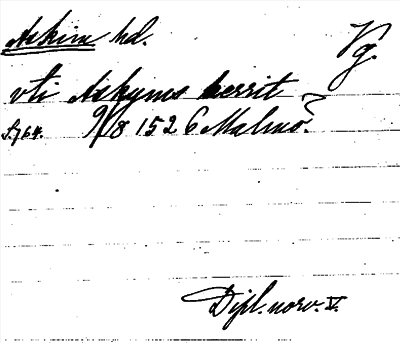 Askim hd. Vg.
vti Askyms herrit
S. 764. 9/8 1526 Malmö.
Dipl. norv. V.